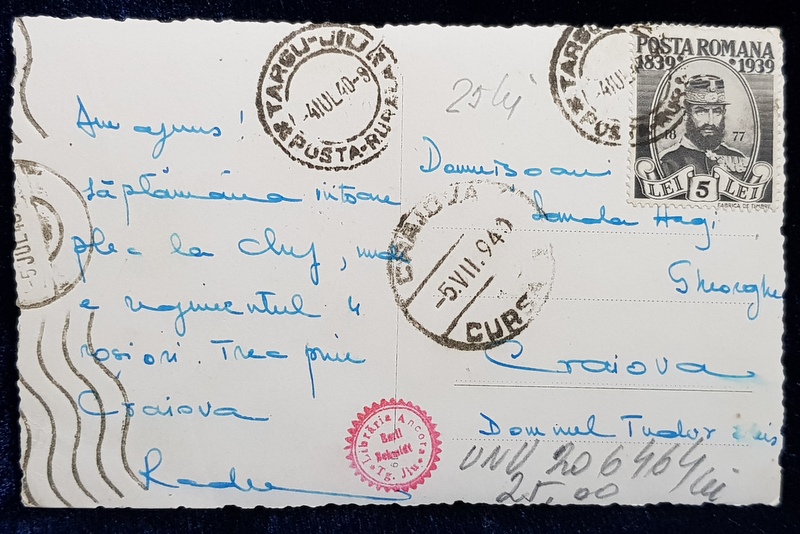 TARGU-JIU
-4 IUL 40-9
POSTA-RURALA
TARGU
-4 IUL
POSTA ROMANA
1839 1939
18 77
LEI 5 LEI
FABRICA DE TIMBRE
25 lei
Am ajuns!
Săptămâna viitoare
plec la Cluj, unde
e regimentul 4
roșiori. Trec prin
Craiova
Radu
-5 IUL 40
CRAIOVA
-5.VII.940
CURSA
Domnișoarei
Hagi
Gheorghe
Craiova
Domnul Tudor
Librăria Ancora
Schmidt
Tg. Jiu
UNU 206464 lei
25,00